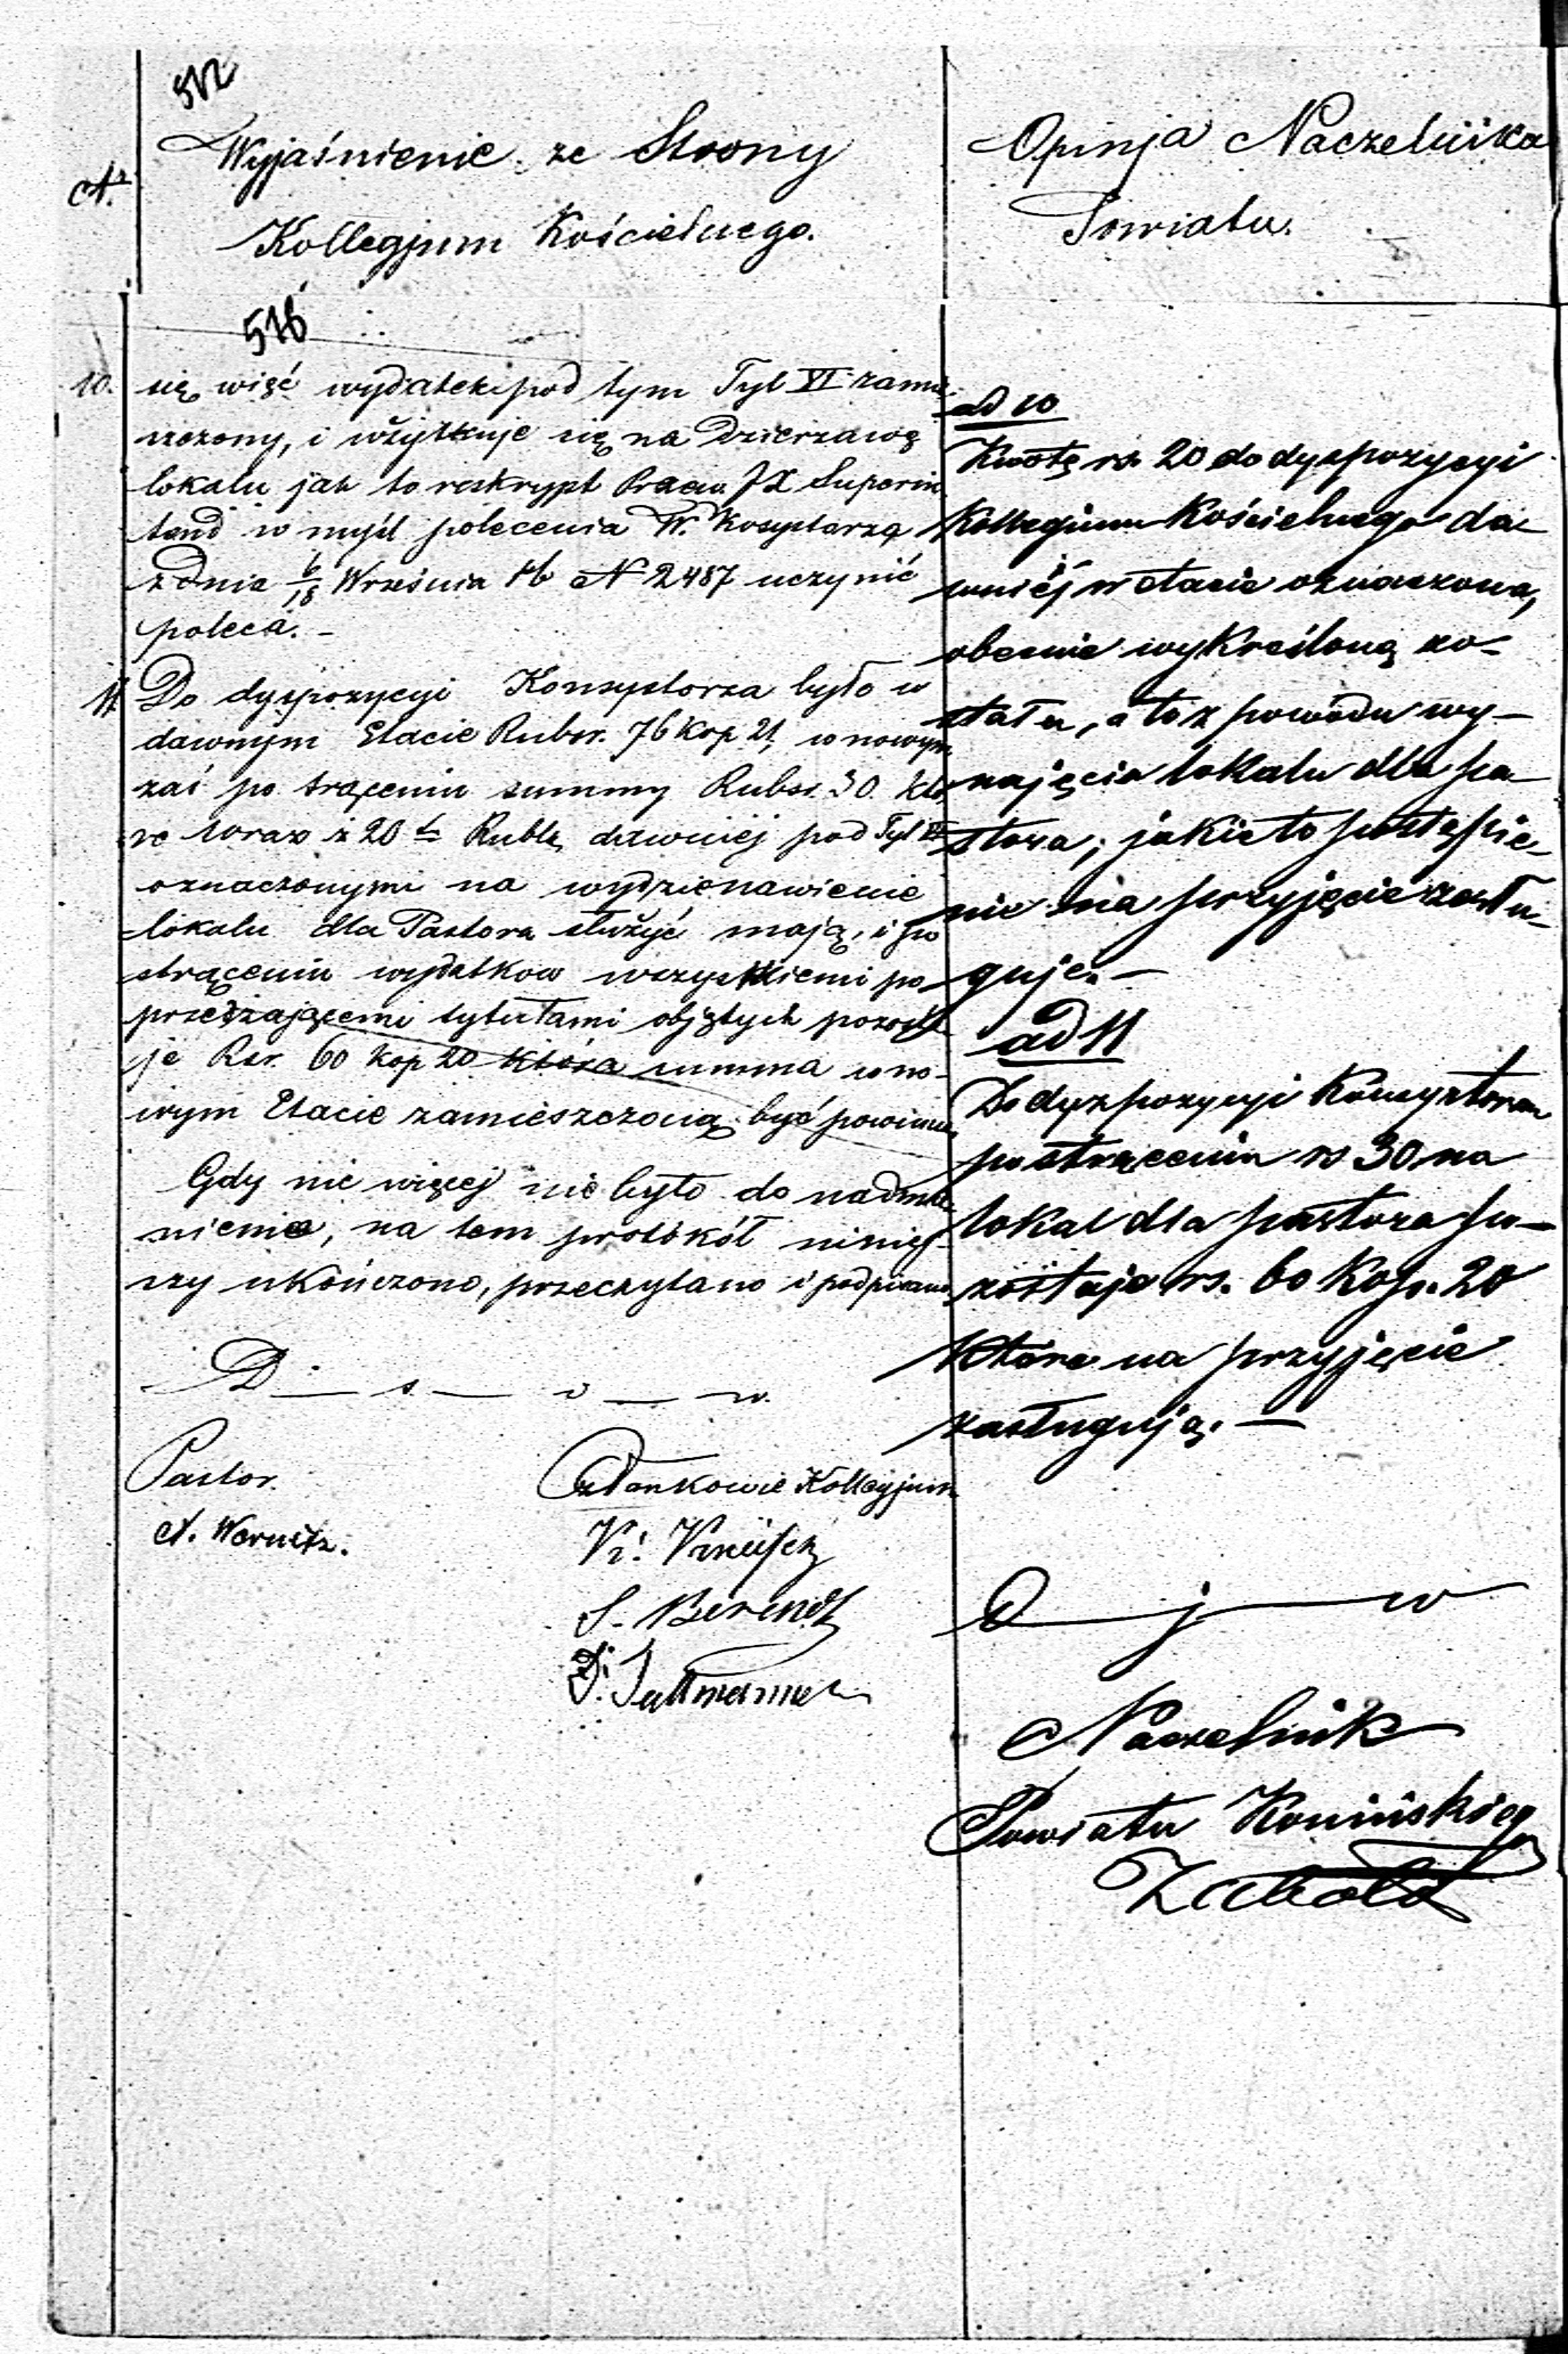 512
Wyjaśnienie ze Strony
Kollegjum Kościelnego.
Opinja Naczelnika
Powiatu.
N.
516
10. się więć wydatek pod tym Tyt VI zamie
szczony, i użytkuje się na Dzierzawę
lokalu jak to reskrypt JX Superin
tend w myśl polecenia W. Kosystarza
z dnia 6/18 Września rb N 2487 uczynić
poleca. -
11 Do dyspozycyi Konsystorza było w
dawnym Etacie Rubsr. 76 Kop 21, w nowym
zaś po trąceniu summy Rubsr. 30. któ
re wraz z 20 tu Rubla dawniej pod Tyt VI
oznaczonymi na wydzierzawienie
lokalu dla Pastora służyć mają, i po
strąceniu wydatkow wszystkiemi po
przedzającemi tytułami objętych pozosta
je Rsr. 60 kop 20 która summa w no-
wym Etacie zamieszczoną być powinna
Gdy nic więcej nie było do nadmie
nienia, na tem protokół niniej-
szy ukończono, przeczytano i podpisano
D — s — u — w.
Pastor.
A. Wernitz.
Członkowie Kollegjum
Kr.
S. Berendt
D.
ad 10
Kwotę rs. 20 do dyspozycyi
Kollegium Kościelnego da-
wniéj w etacie oznaczona,
obecnie wykreśloną zo-
stała, a to z powodu wy-
najęcia lokalu dla pa
stora; jakie to postąpie-
nie na przyjęcie zasłu-
guje. —
ad 11
Do dyspozycyi Konsystorza
po strąceniu rs 30 na
lokal dla pastora po-
zostaje rs. 60 Kop. 20
które na przyjęcie
zasługują. —
D — j — w
Naczelnik
Powiatu Konińskieg